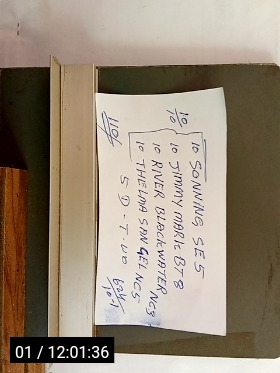 10/10
10 SONNING SE5
10 JIMMY MARK BT8
10 RIVER BLACKWATER NC3
10 THELMA SPNGEL NC5
5 D - T - UO
01 / 12:01:36